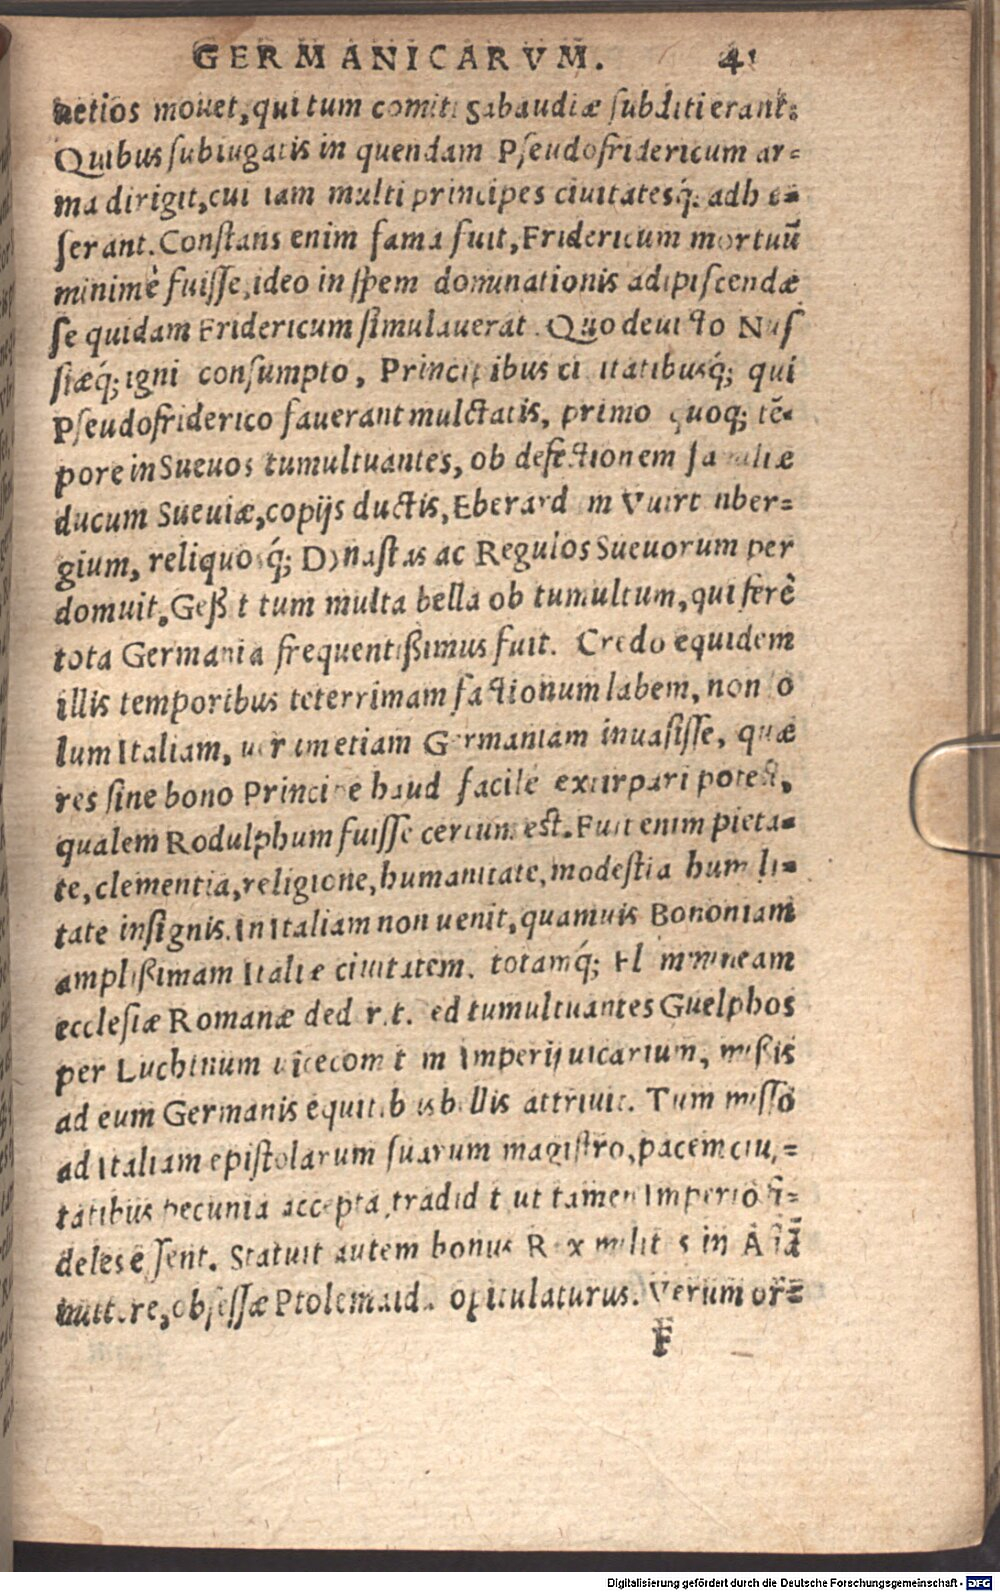 GERMANICARVM. 41
uetios mouet, qui tum comiti Sabaudiæ subditi erant.
Quibus subiugatis in quendam Pseudofridericum ar=
ma dirigit, cui iam multi principes ciuitatesq́; adhæ=
serant. Constans enim fama fuit, Fridericum mortuū
minimè fuisse, ideo in spem dominationis adipiscendæ
se quidam Fridericum simulauerat. Quo deuicto Nus
siæq́; igni consumpto, Principibus ciuitatibusq́; qui
Pseudofriderico fauerant mulctatis, primo quoq; tē=
pore in Sueuos tumultuantes, ob defectionem familiæ
ducum Sueuiæ, copijs ductis, Eberardum Vuirtenber=
gium, reliquosq́; Dynastas ac Regulos Sueuorum per
domuit. Geßit tum multa bella ob tumultum, qui ferè
tota Germania frequentißimus fuit. Credo equidem
illis temporibus teterrimam factionum labem, non so
lum Italiam, uerumetiam Germaniam inuasisse, quæ
res sine bono Principe haud facile extirpari potest,
qualem Rodulphum fuisse certum est. Fuit enim pieta=
te, clementia, religione, humanitate, modestia humili=
tate insignis. In Italiam non uenit, quamuis Bononiam
amplißimam Italiæ ciuitatem, totamq́; Flammineam
ecclesiæ Romanæ dederit. Sed tumultuantes Guelphos
per Luchinum uicecomitem Imperij uicarium, mißis
ad eum Germanis equitibus bellis attriuit. Tum misso
ad Italiam epistolarum suarum magistro, pacem ciui=
tatibus pecunia accepta tradidit ut tamen Imperio fi=
deles essent. Statuit autem bonus Rex milites in Asiā
mittere, obsessæ Ptolemaidi opitulaturus. Verum or=
F
Digitalisierung gefördert durch die Deutsche Forschungsgemeinschaft - DFG